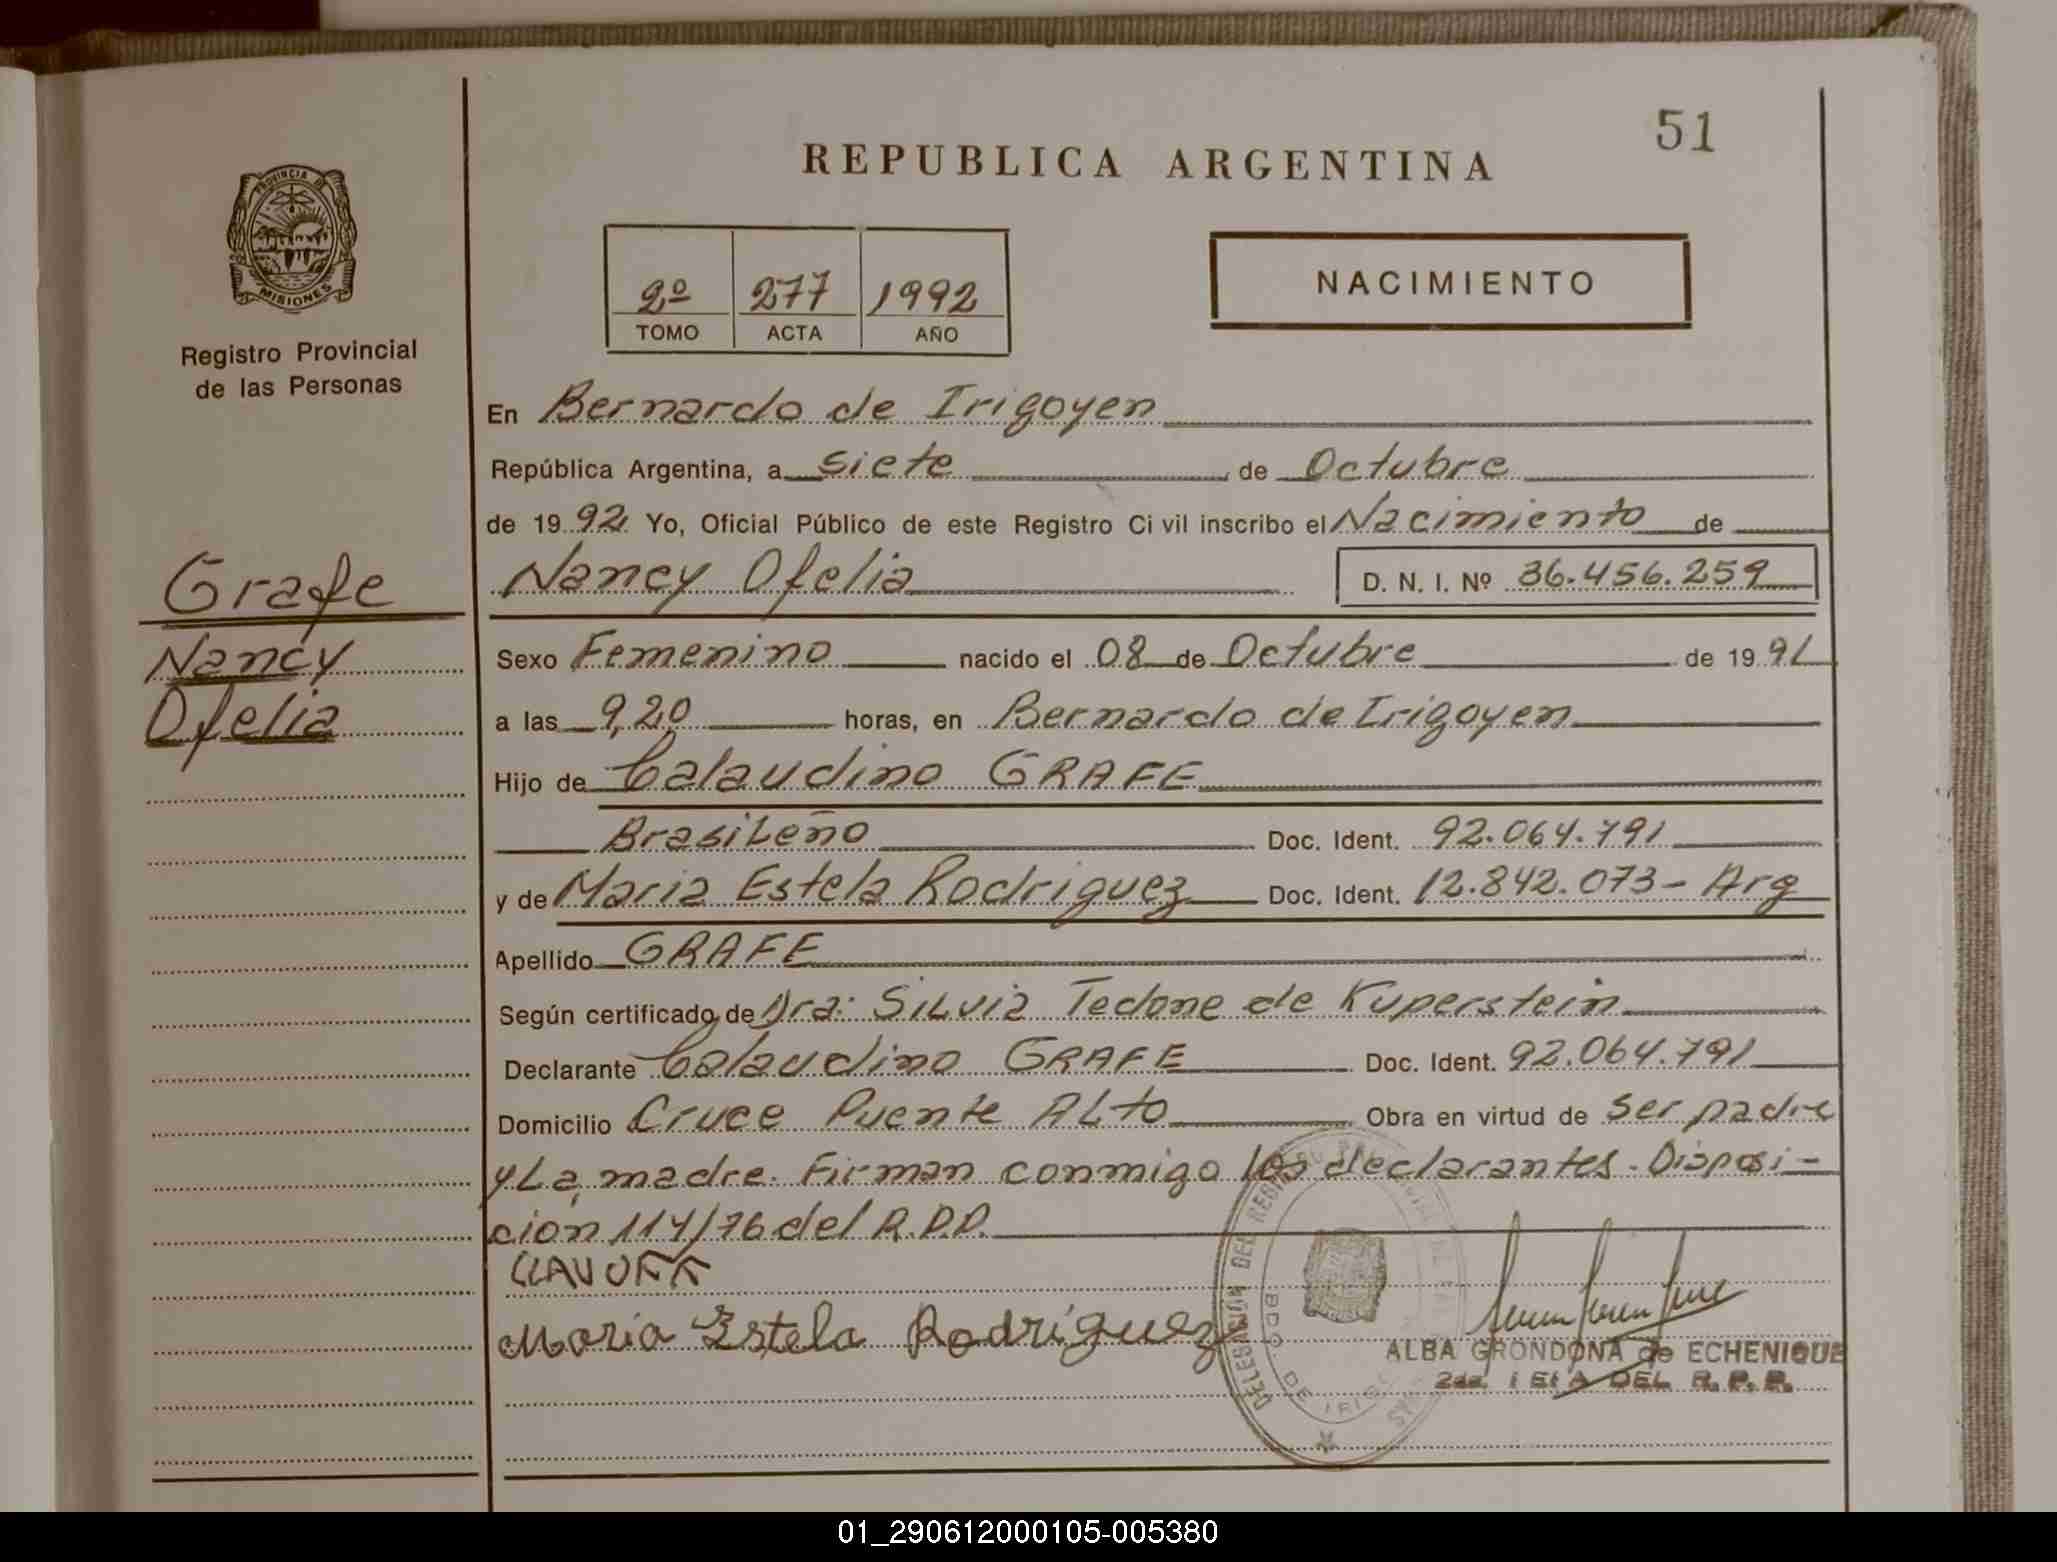 51
REPUBLICA ARGENTINA
PROVINCIA DE
MISIONES
Registro Provincial
de las Personas
2º 277 1992
TOMO ACTA AÑO
NACIMIENTO
En Bernardo de Irigoyen
República Argentina, a siete de Octubre
de 1992 Yo, Oficial Público de este Registro Ci vil inscribo el Nacimiento de
Nancy Ofelia D. N. I. Nº 36.456.259
Grafe
Nancy
Ofelia
Sexo Femenino nacido el 08 de Octubre de 1991
a las 9,20 horas, en Bernardo de Irigoyen
Hijo de Calaudino GRAFE
Brasileño Doc. Ident. 92.064.791
y de Maria Estela Rodriguez Doc. Ident. 12.842.073- Arg
Apellido GRAFE
Según certificado de Dra: Silvia Tedone de Kuperstein
Declarante Calaudino GRAFE Doc. Ident. 92.064.791
Domicilio Cruce Puente Alto Obra en virtud de ser padre
y La madre. Firman conmigo los declarantes. Disposi-
cion 114/76 del R.P.P.
Maria Estela Rodríguez
DELEGACIÓN DEL
BDO. DE IRIGO
ALBA GRONDONA de ECHENIQUE
DEL R. P. P.
01_290612000105-005380